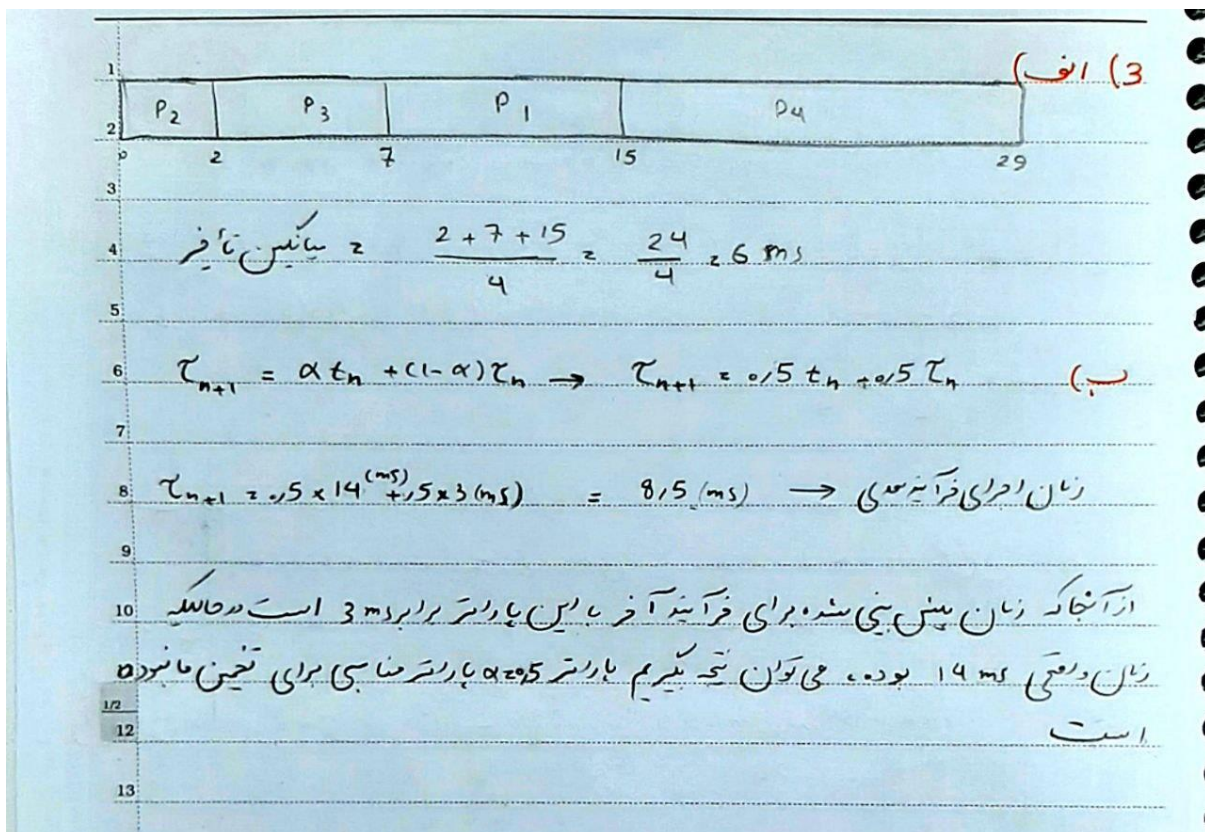 3) الف)
P2 P3 P1 P4
0 2 7 15 29
میانگین تأخیر = (2 + 7 + 15)/4 = 24/4 = 6 ms
ب) τn+1 = α tn + (1-α) τn → τn+1 = 0,5 tn + 0,5 τn
τn+1 = 0,5 × 14 (ms) + ,5 × 3 (ms) = 8,5 (ms) → زمان اجرای فرآیند بعدی
از آنجا که زمان پیش بینی شده برای فرآیند آخر با این پارامتر برابر 3 ms است در حالیکه
زمان واقعی 14 ms بوده، می توان نتیجه بگیریم پارامتر α=0,5 پارامتر مناسبی برای تخمین ما نبوده
است
1
2
3
4
5
6
7
8
9
10
1/2
12
13